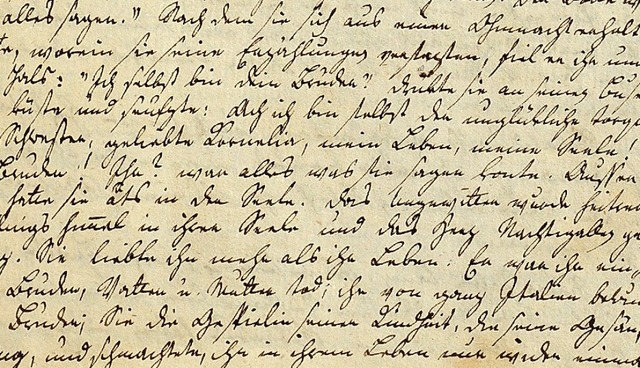 alles sagen." Nach dem sie sich aus einer Ohnmacht erholt
worein sie seine Erzählungen versetzten, fiel er ihr um
Hals: "Ich selbst bin dein Bruder" drükte sie an seinen Buse
küste und seufzte: Ach ich bin selbst der unglükliche
Schwester, geliebte Cornelia, mein Leben, meine Seele!
Bruder! Ihr? war alles was sie sagen konte. Aussen
hatte sie in der Seele. Das Ungewitter wurde heitrer
himmel in ihrer Seele und das Herz Nachtigallen
Sie liebte ihn mehr als ihr Leben: Er war ihr
Bruder, Vatter u. Mutter tod; ihr von ganz Italien
Bruder; Sie die Gespielin seiner Kindheit, der seine
und schmachtete, ihr in ihrem Leben nur wieder einma